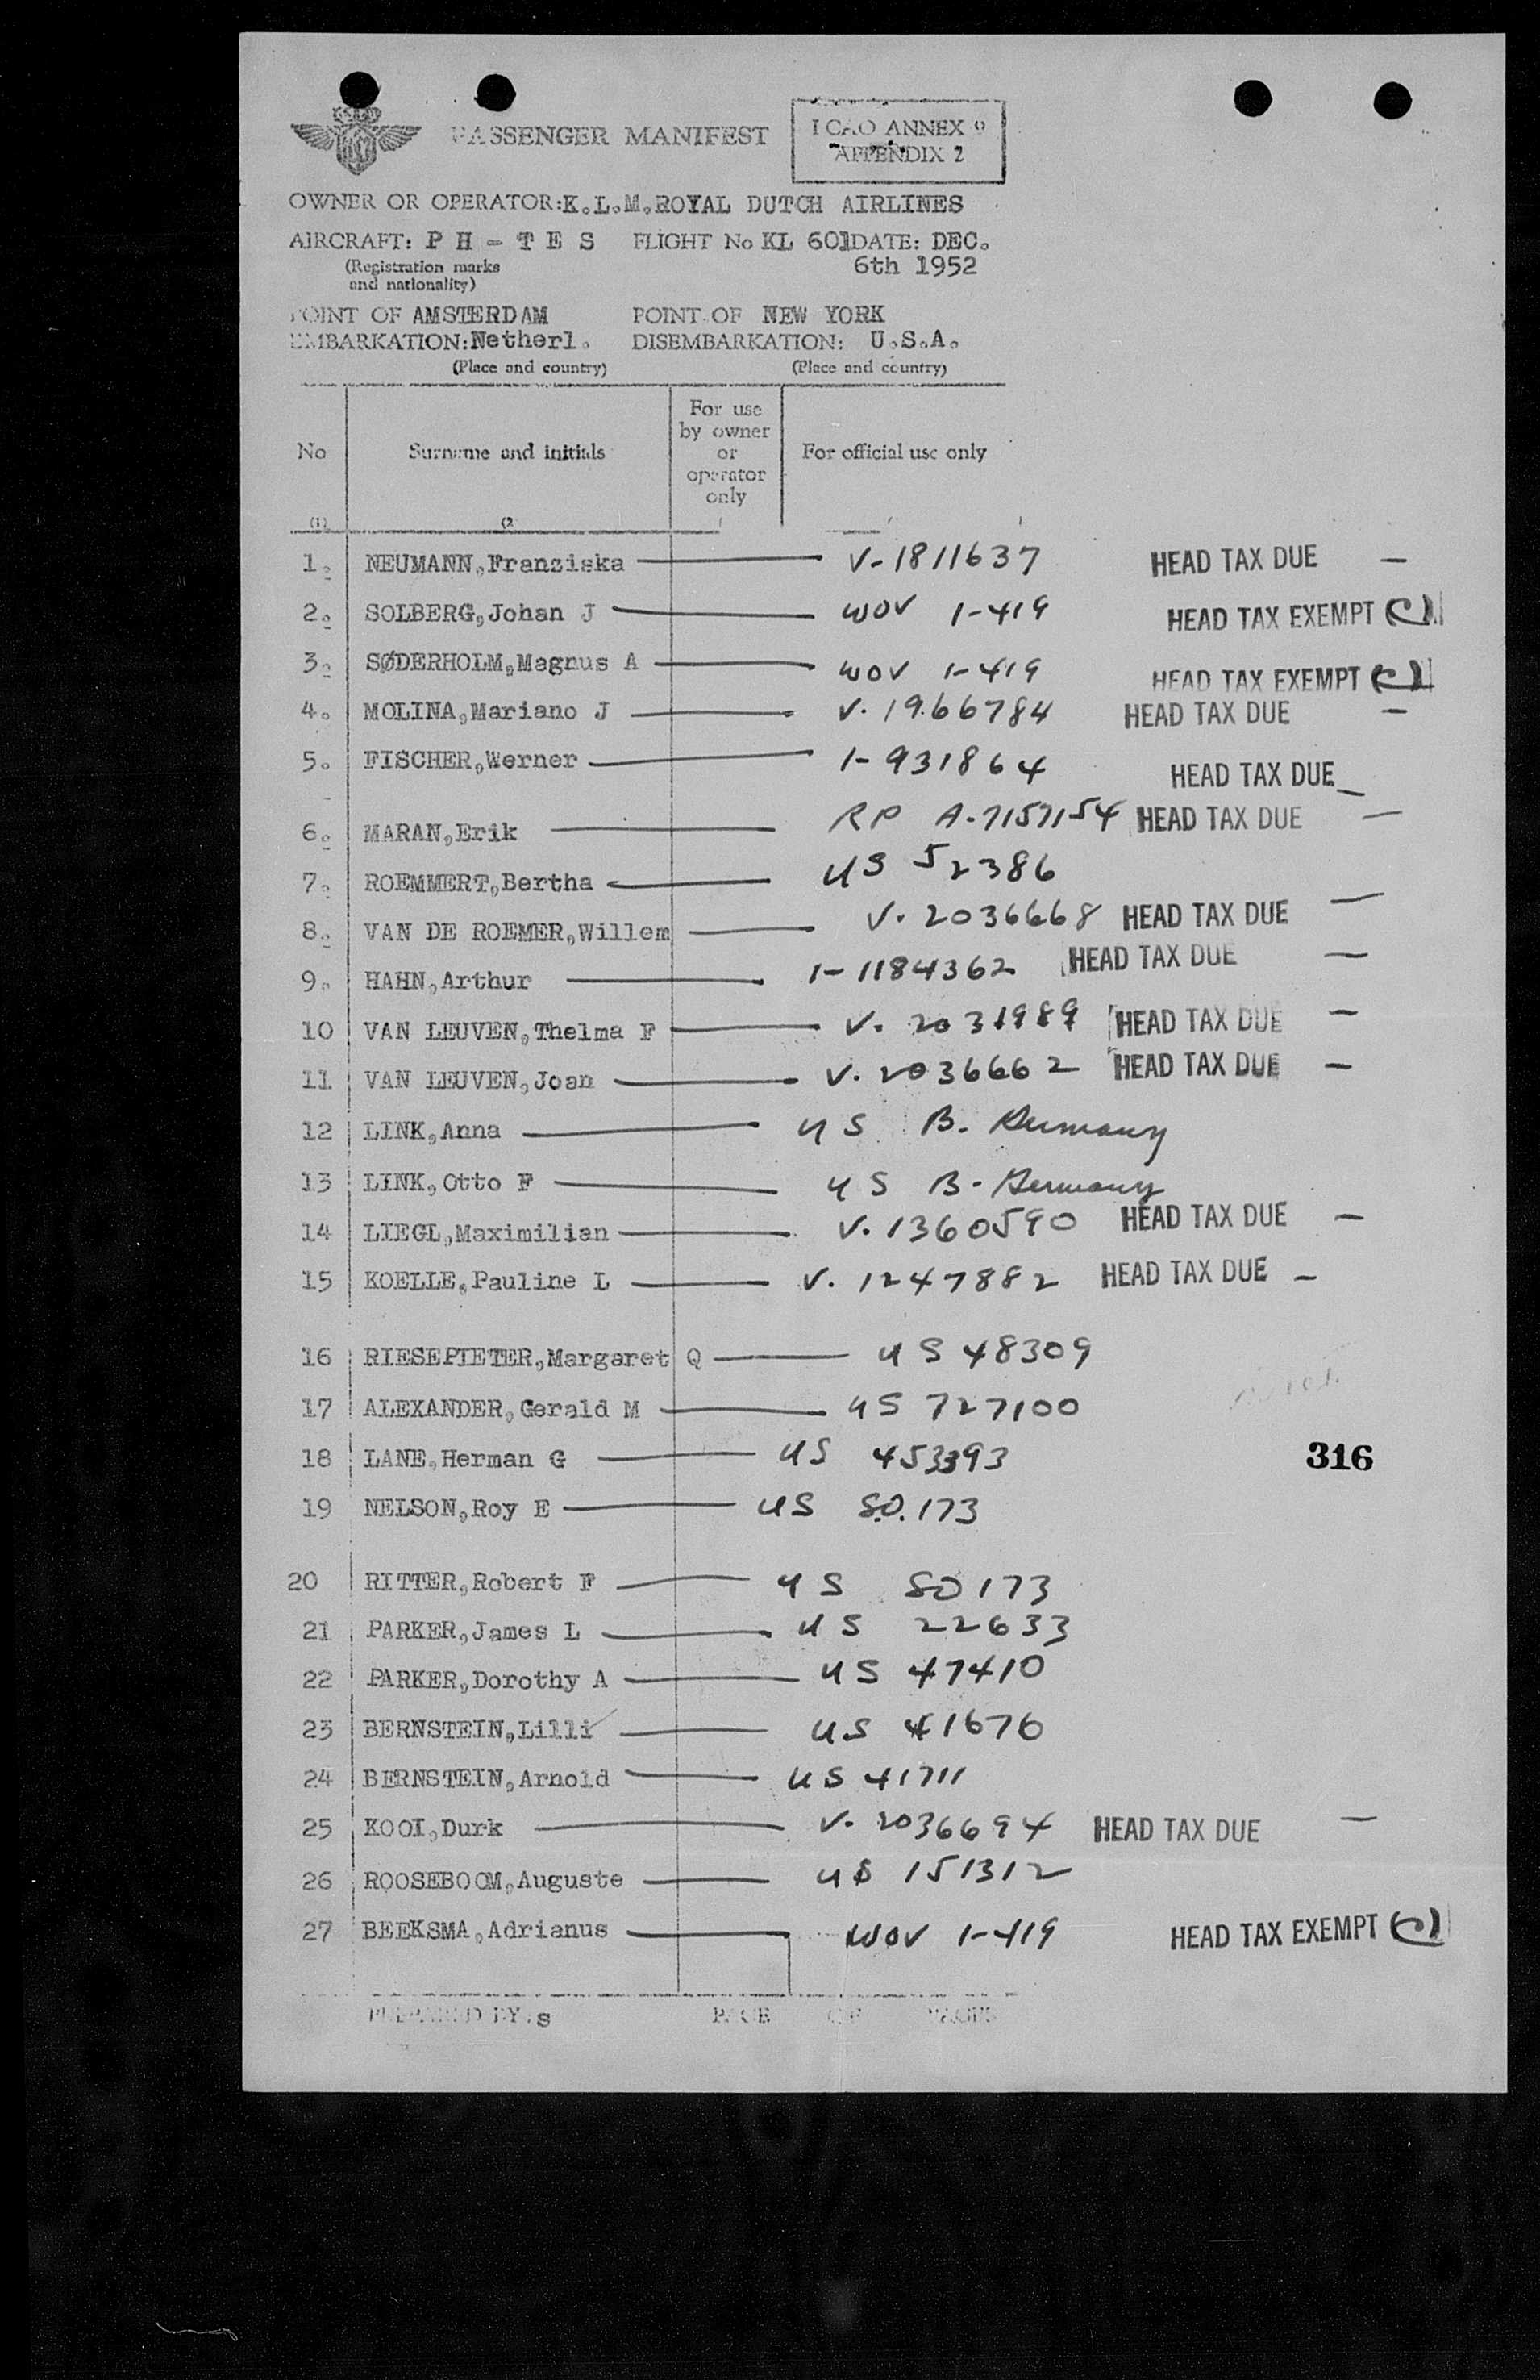 PASSENGER MANIFEST
ICAO ANNEX 9
APPENDIX 2
OWNER OR OPERATOR: K.L.M. ROYAL DUTCH AIRLINES
AIRCRAFT: P H - T E S FLIGHT No KL 601 DATE: DEC.
(Registration marks 6th 1952
and nationality)
POINT OF AMSTERDAM POINT OF NEW YORK
EMBARKATION: Netherl. DISEMBARKATION: U.S.A.
(Place and country) (Place and country)
No Surname and initials For use by owner or operator only For official use only
(1) (2
1. NEUMANN, Franziska V-1811637 HEAD TAX DUE —
2. SOLBERG, Johan J WOV 1-419 HEAD TAX EXEMPT
3. SØDERHOLM, Magnus A WOV 1-419 HEAD TAX EXEMPT
4. MOLINA, Mariano J V. 1966784 HEAD TAX DUE —
5. FISCHER, Werner 1-931864 HEAD TAX DUE —
6. MARAN, Erik RP A-7157154 HEAD TAX DUE —
7. ROEMMERT, Bertha US 52386
8. VAN DE ROEMER, Willem V. 2036668 HEAD TAX DUE —
9. HAHN, Arthur 1-1184362 HEAD TAX DUE —
10 VAN LEUVEN, Thelma F V. 2031989 HEAD TAX DUE —
11 VAN LEUVEN, Joan V. 2036662 HEAD TAX DUE —
12 LINK, Anna US B. Germany
13 LINK, Otto F US B-Germany
14 LIEGL, Maximilian V. 1360590 HEAD TAX DUE —
15 KOELLE, Pauline L V. 1247882 HEAD TAX DUE —
16 RIESEPIETER, Margaret Q US 48309
17 ALEXANDER, Gerald M US 727100
18 LANE, Herman G US 453393
316
19 NELSON, Roy E US S.O. 173
20 RITTER, Robert F US SO 173
21 PARKER, James L US 22633
22 PARKER, Dorothy A US 47410
23 BERNSTEIN, Lilli US 41676
24 BERNSTEIN, Arnold US 41711
25 KOOI, Durk V. 2036694 HEAD TAX DUE —
26 ROOSEBOOM, Auguste US 151312
27 BEEKSMA, Adrianus WOV 1-419 HEAD TAX EXEMPT
PREPARED BY: s PAGE OF PAGES